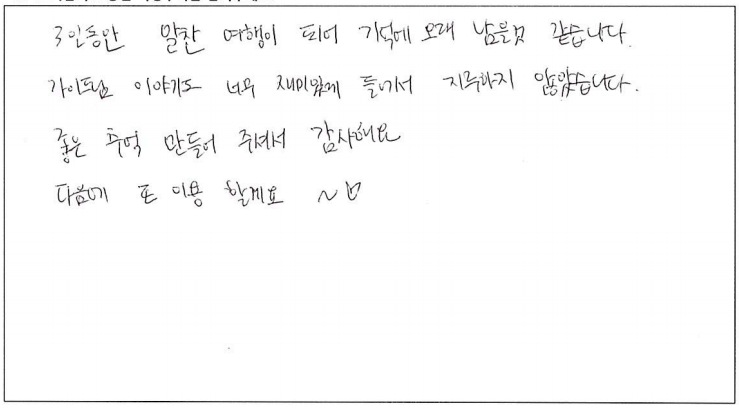 3일동안 알찬 여행이 되어 기억에 오래 남을것 같습니다.
가이드님 이야기도 너무 재미있게 들어서 지루하지 않았습니다.
좋은 추억 만들어 주셔서 감사해요
다음에 또 이용 할게요 ~♡